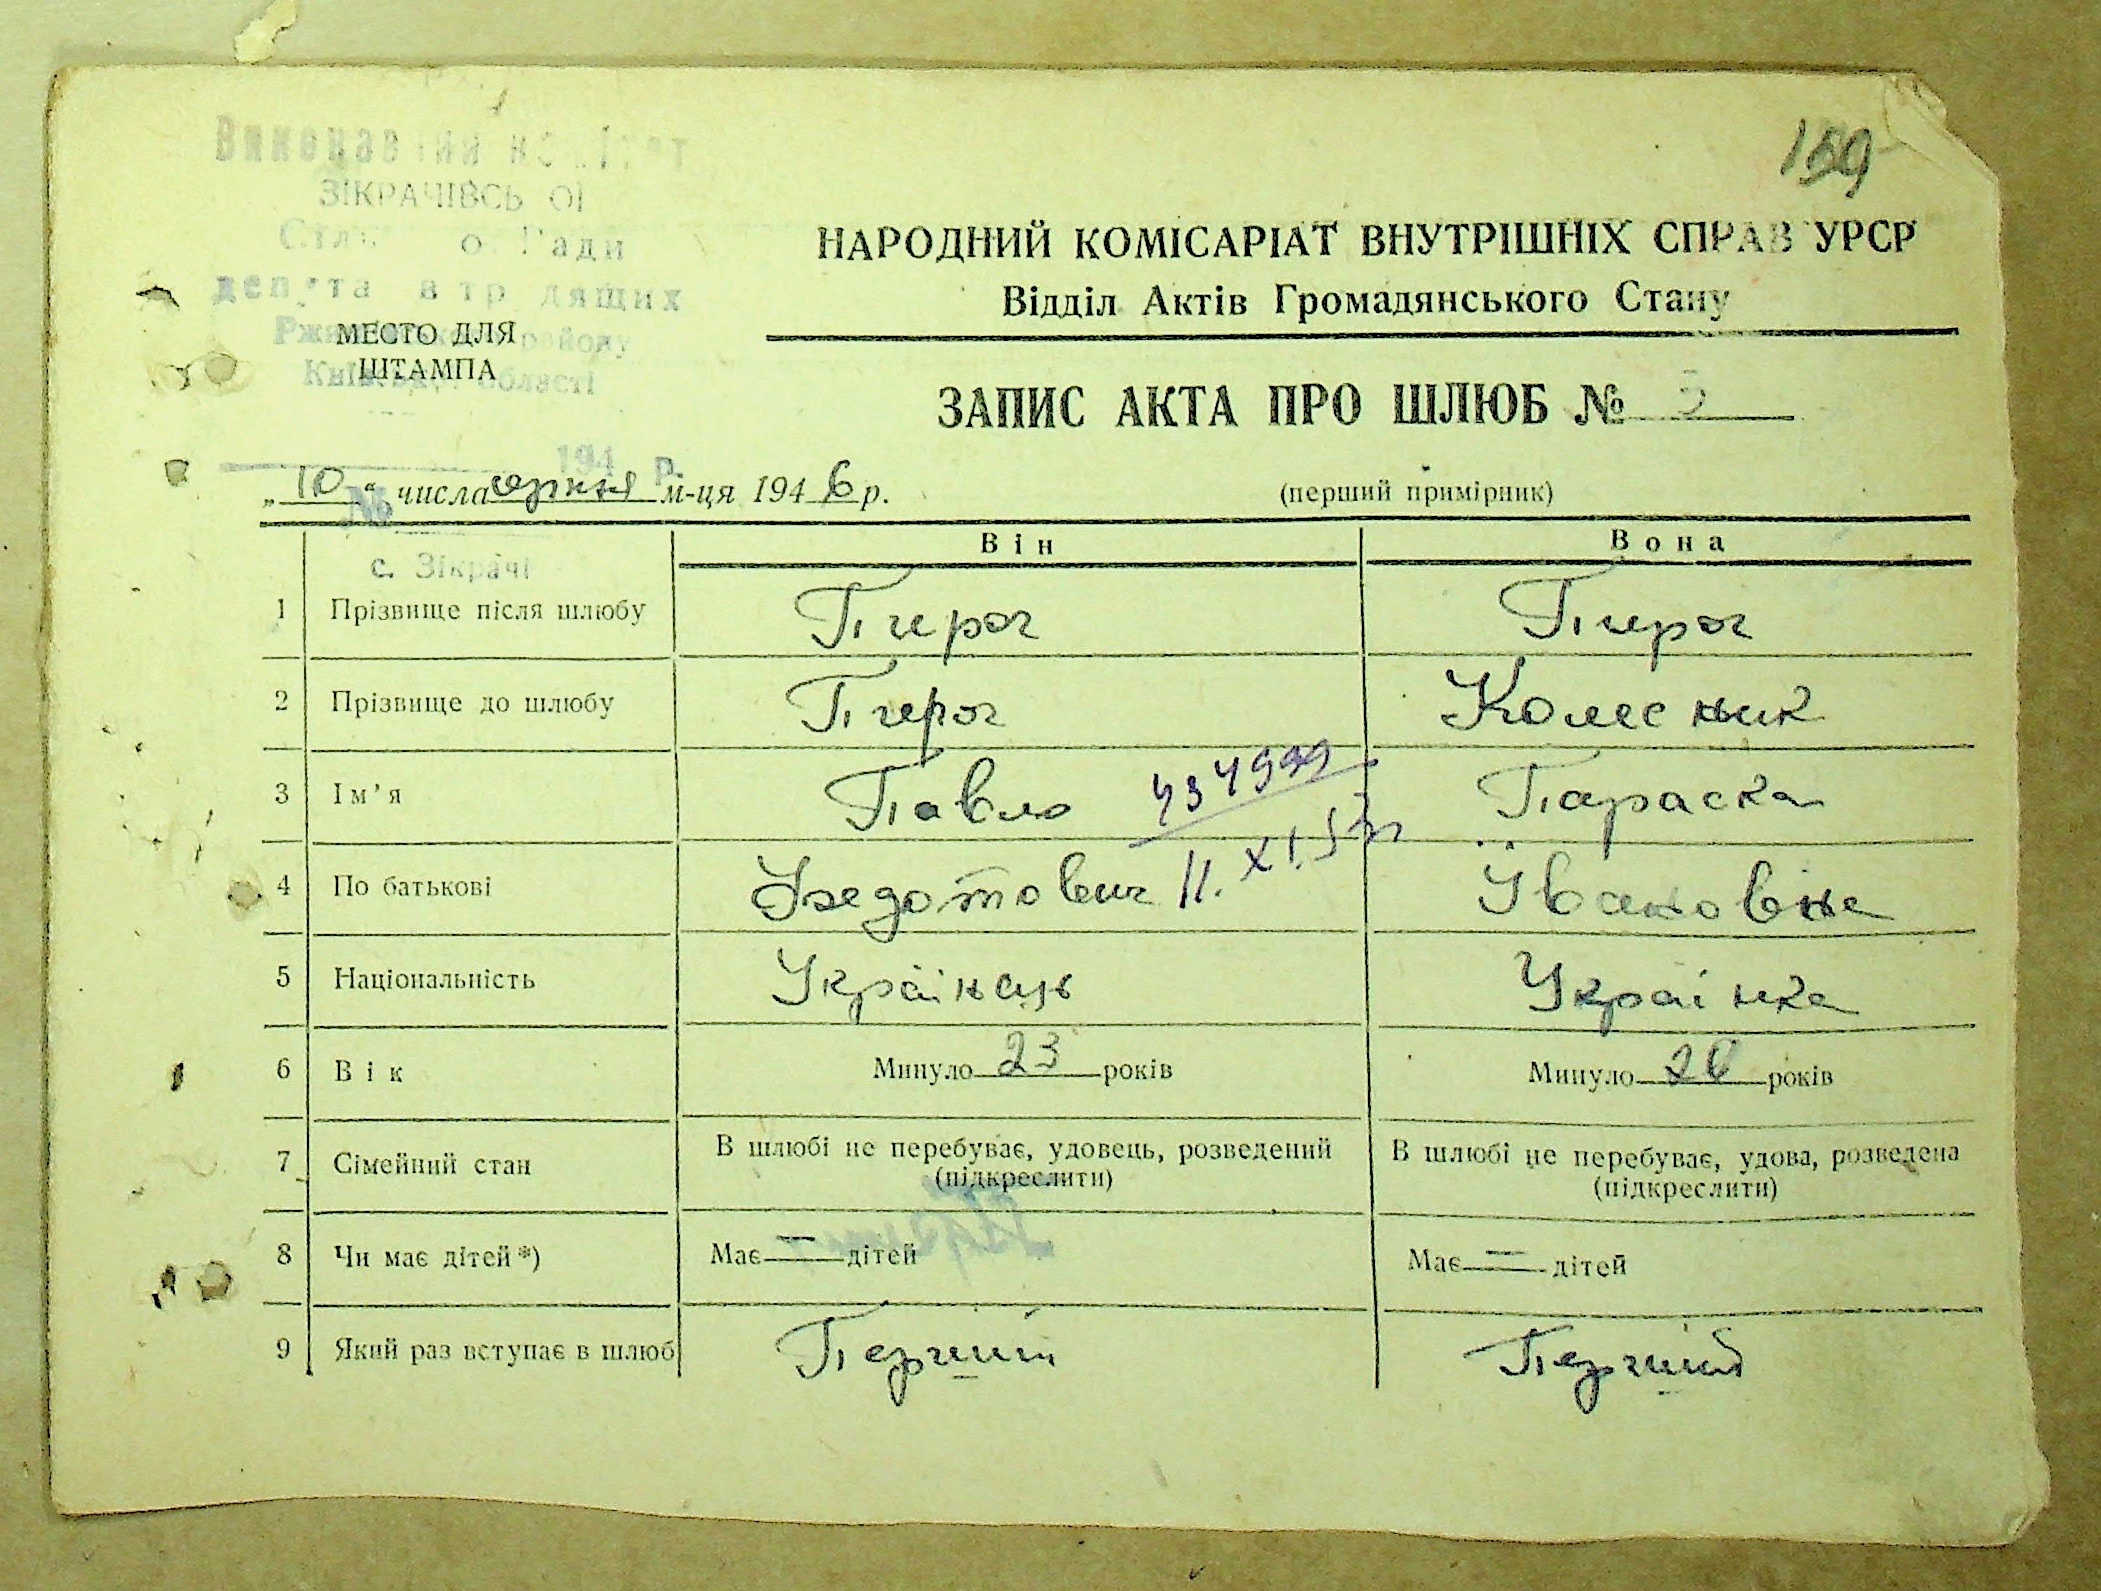 159
Виконавчий комітет
ЗІКРАЧІВСЬ ОЇ
Ради
депута трудящих
району
області
МЕСТО ДЛЯ
ШТАМПА
НАРОДНИЙ КОМІСАРІАТ ВНУТРІШНІХ СПРАВ УРСР
Відділ Актів Громадянського Стану
ЗАПИС АКТА ПРО ШЛЮБ № 5
194 р.
„ 10 “ числа серпня м-ця 1946 р.
(перший примірник)
№
с. Зікрачі
Він Вона
1 Прізвище після шлюбу Пчероч Пчероч
2 Прізвище до шлюбу Пчероч Колесник
3 Ім’я Павло Параска
434999
11.XI.53г
4 По батькові Федотович Івановна
5 Національність Українець Українка
6 Вік Минуло 23 років Минуло 26 років
7 Сімейний стан В шлюбі не перебуває, удовець, розведений (підкреслити) В шлюбі не перебуває, удова, розведена (підкреслити)
8 Чи має дітей *) Має — дітей Має — дітей
9 Який раз вступає в шлюб Перчий Перчий